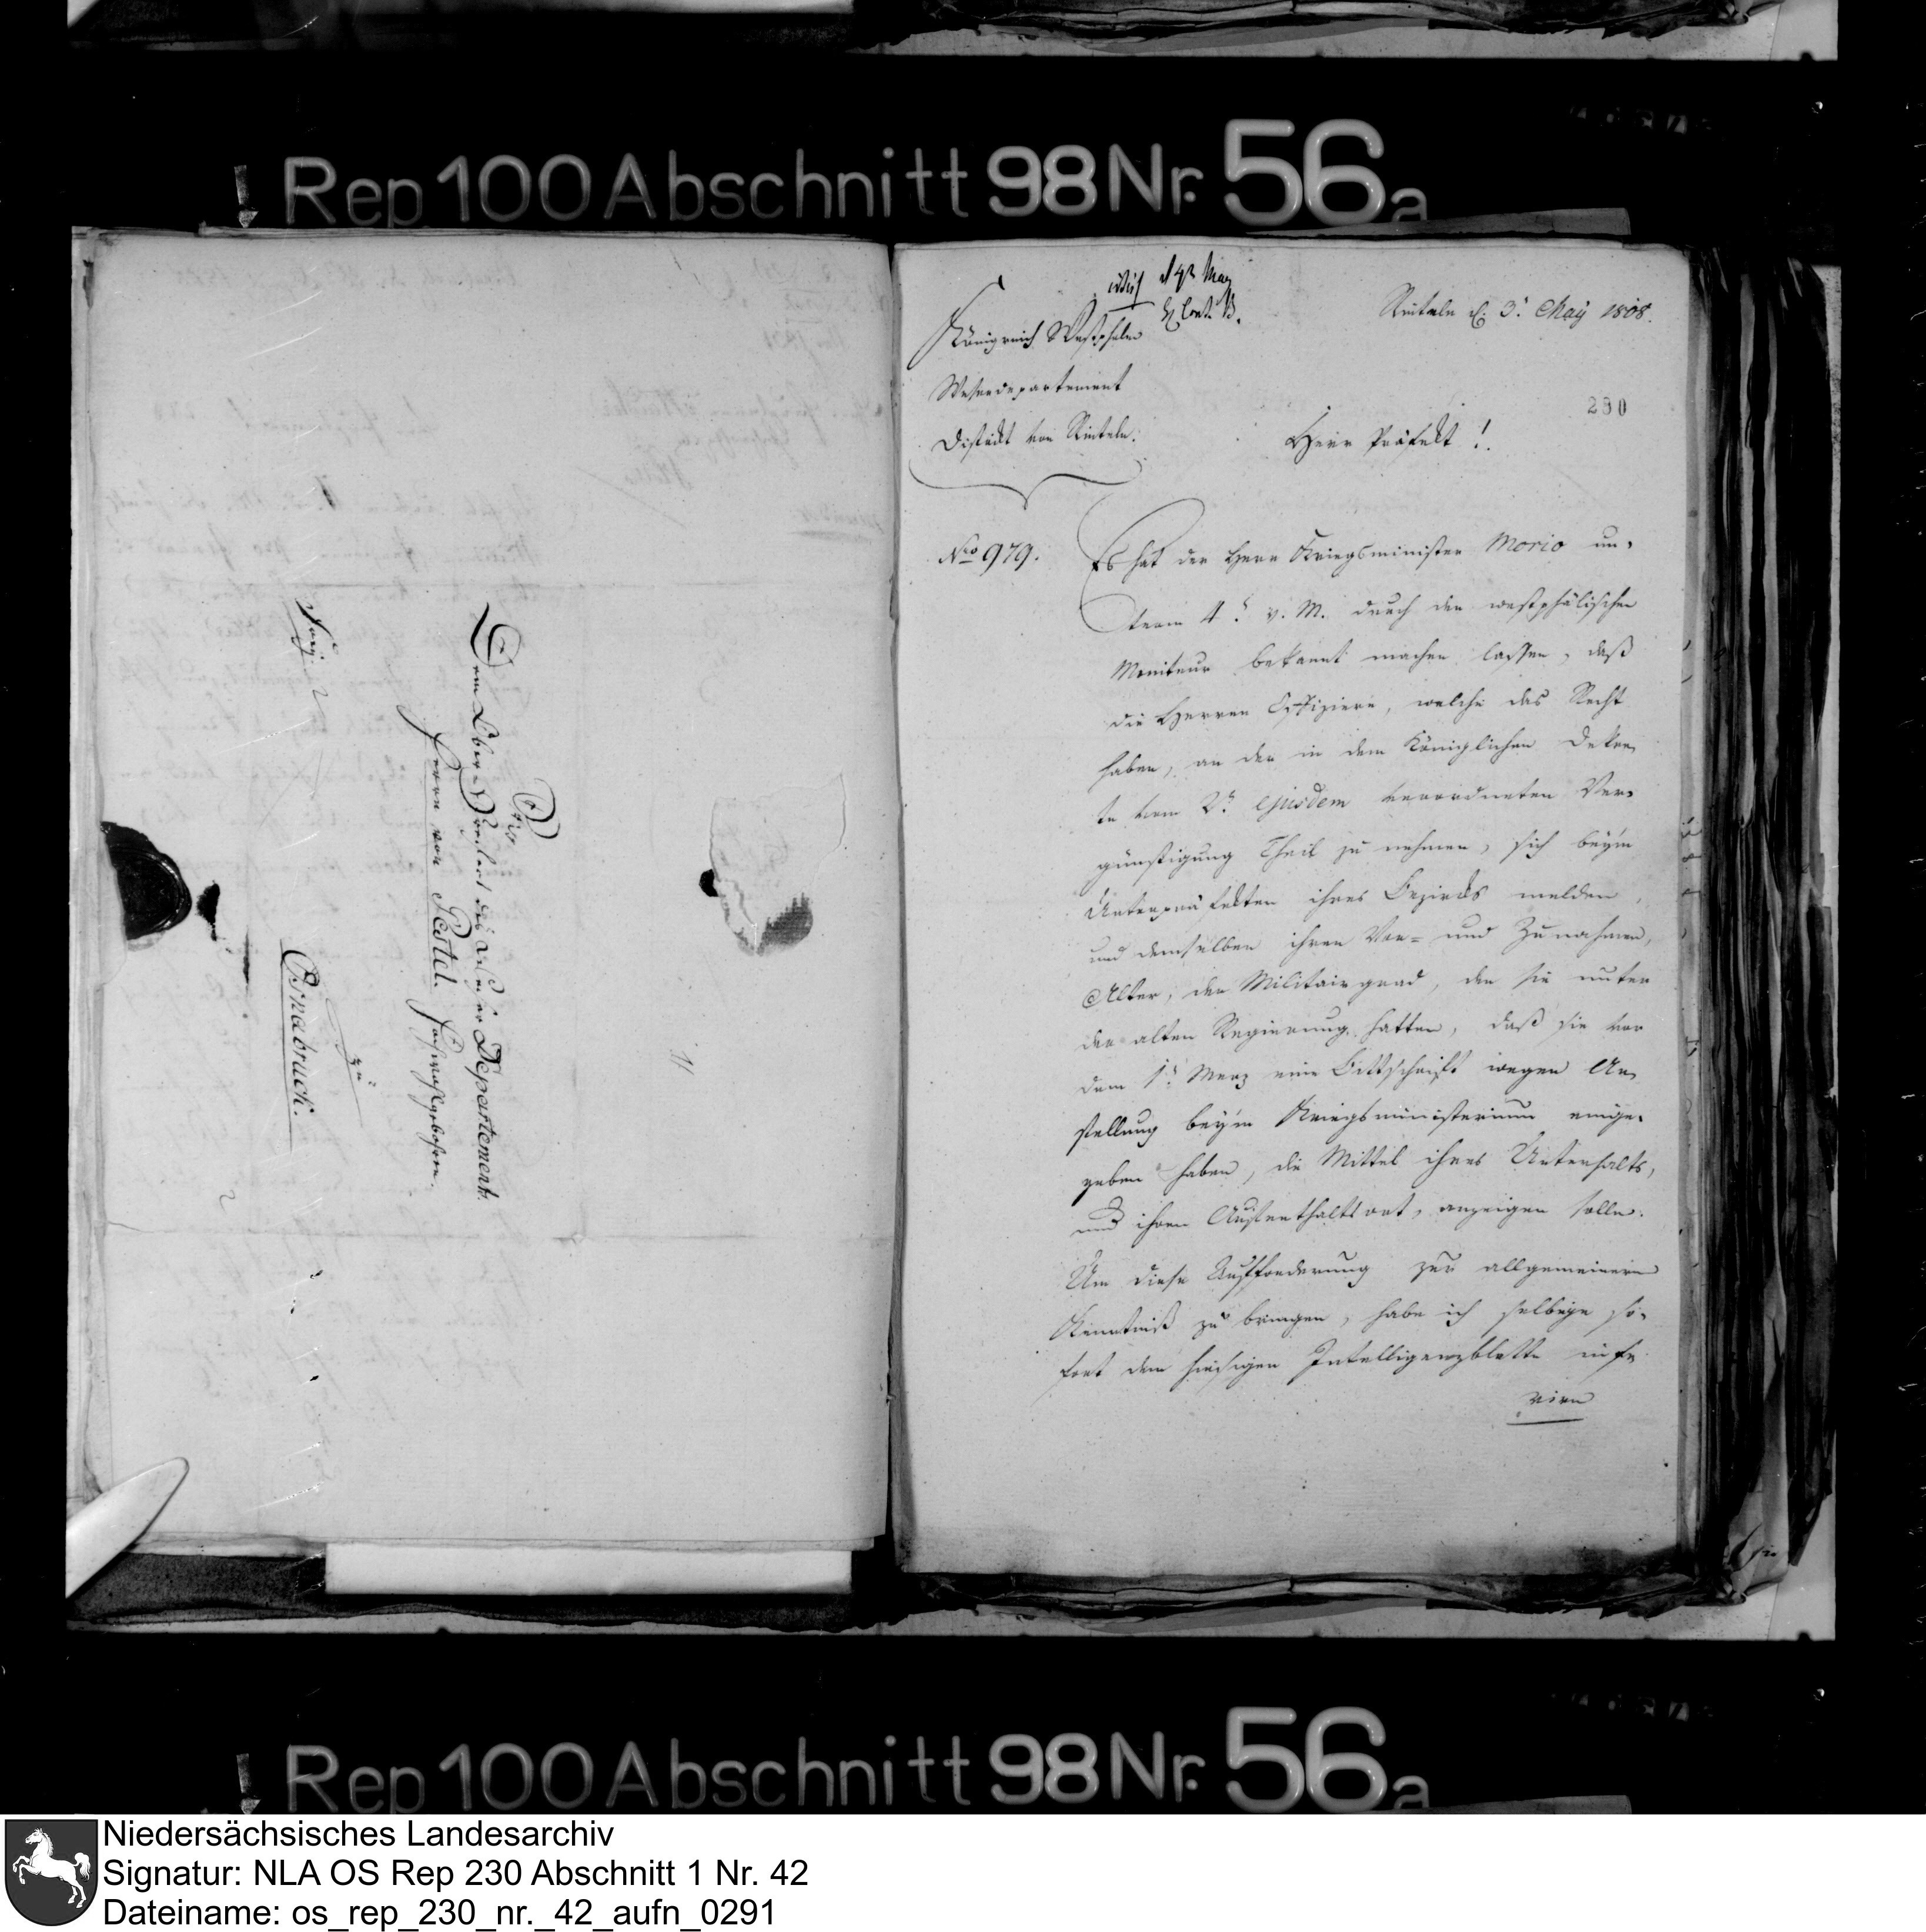 Rep 100 Abschnitt 98 Nr. 56a
Dem Ober-Präfect des Weser Departement
Herrn von Pestel. Hochwohlgebohrn.
zu
Osnabruck.
d 4t May
Rinteln d. 3t May 1808.
Königreich Westphalen
Weserdepartement
District von Rinteln.
290
Herr Präfekt!
No 979.
Es hat der Herr Kriegsminister Morio un-
term 4t v. M. durch den westphälischen
Moniteur bekannt machen lassen, daß
die Herren Offiziere, welche das Recht
haben, an der in dem Königlichen Dekre-
te vom 2t ejusdem verordneten Ver-
günstigung Theil zu nehmen, sich beym
Unterpräfekten ihres Bezirks melden,
und demselben ihren Vor- und Zunahmen,
Alter, den Militairgrad, den sie unter
der alten Regierung hatten, daß sie vor
dem 1t Merz eine Bittschrift wegen An-
stellung beym Kriegsministerium einge-
geben haben, die Mittel ihres Unterhalts,
und ihren Aufenthaltsort, anzeigen sollen.
Um diese Aufforderung zur allgemeinern
Kenntniß zu bringen, habe ich selbige so-
fort dem hiesigen Intelligenzblatte inse-
riren
Rep 100 Abschnitt 98 Nr. 56a
Niedersächsisches Landesarchiv
Signatur: NLA OS Rep 230 Abschnitt 1 Nr. 42
Dateiname: os_rep_230_nr._42_aufn_0291